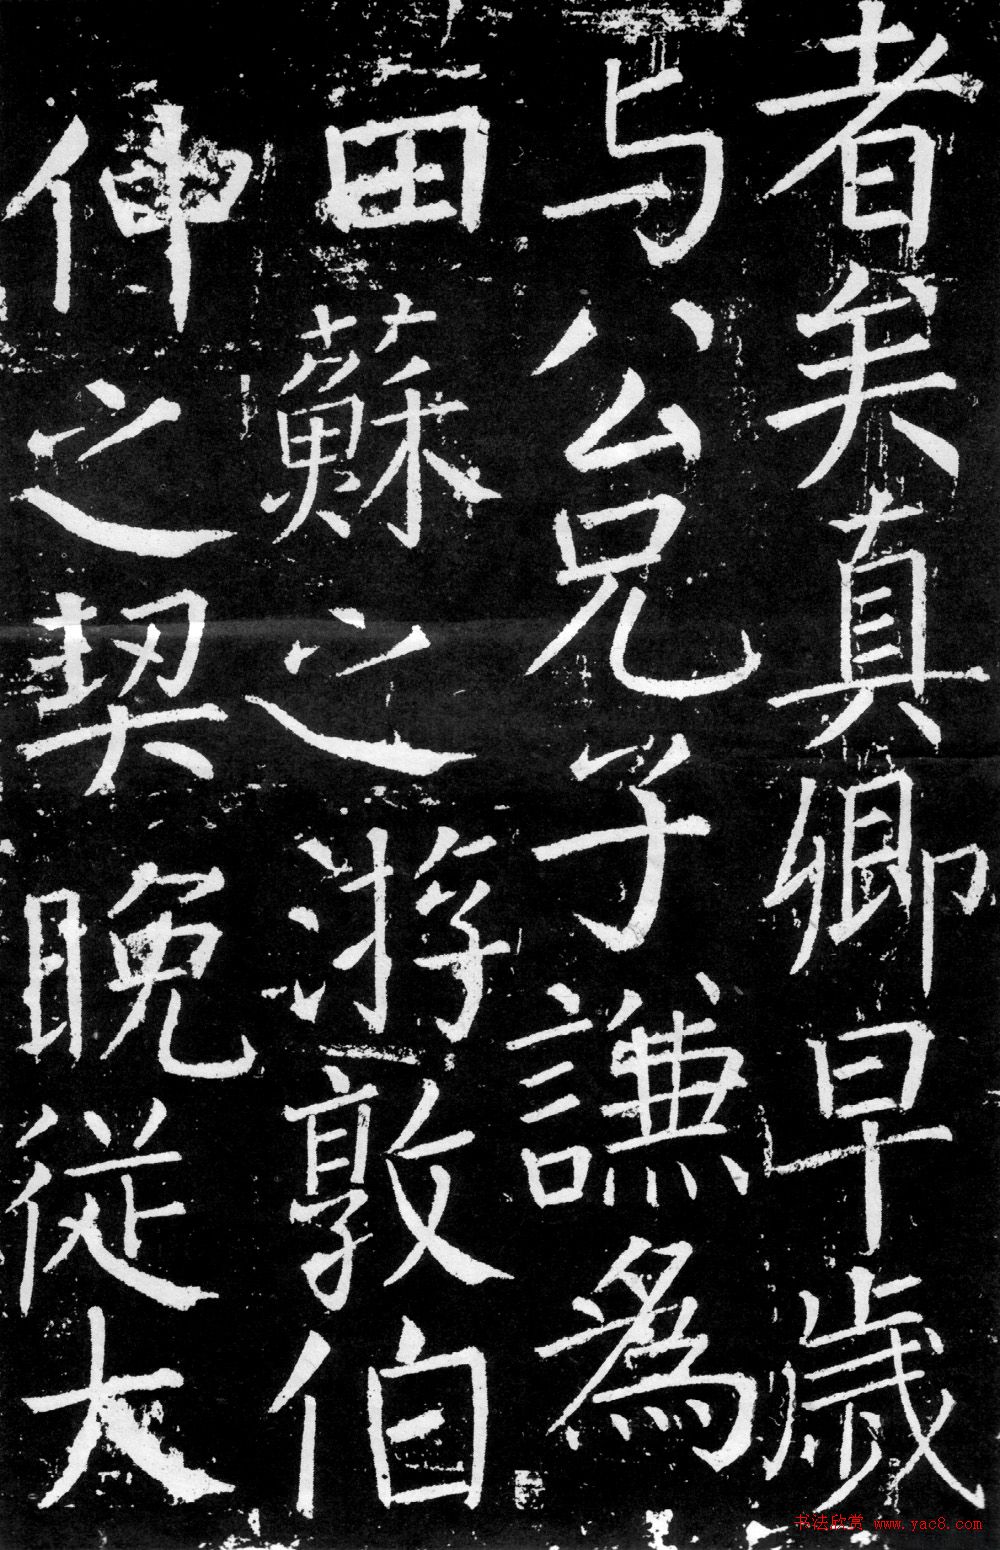 者矣真卿早歲
与公兄子謙為
田蘇之游敦伯
仲之契晚従大
书法欣赏 www.yac8.com